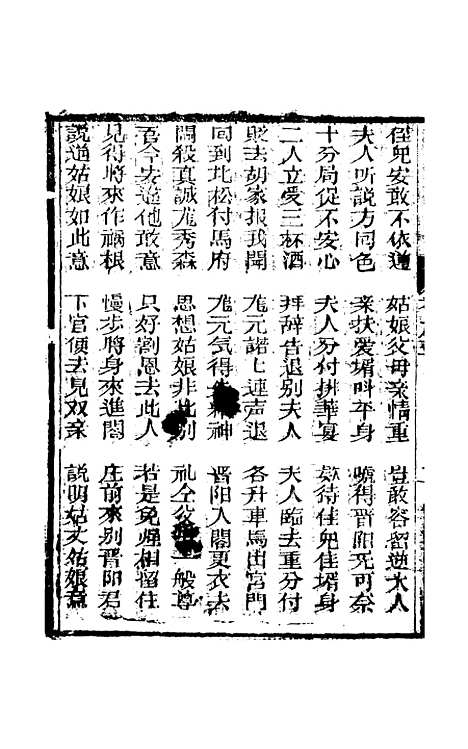 侄児安敢不依遵　姑娘父母亲情重　豈敢容留逆大人
夫人听說方回色　亲扶爱壻呌平身　唬得晋阳旡可奈
十分局促不安心　夫人分付排華宴　欵待侄児佳壻身
二人立受三杯酒　拜辞告退别夫人　夫人臨去重分付
貶去胡家报我聞　尨元諾七連声退　各升車馬出宮門
回到北松付馬府　尨元気得神　晋阳入閣更衣去
悶殺真誠尨秀森　思想姑娘非别　礼仝父一般尊
吾今安逆他敢意　只好割恩去此人　若是免相留住
見得將來作禍根　慢步將身來進閣　庄前來别晋阳君
說通姑娘如此意　下官便去見双亲　說明姑丈姑娘意